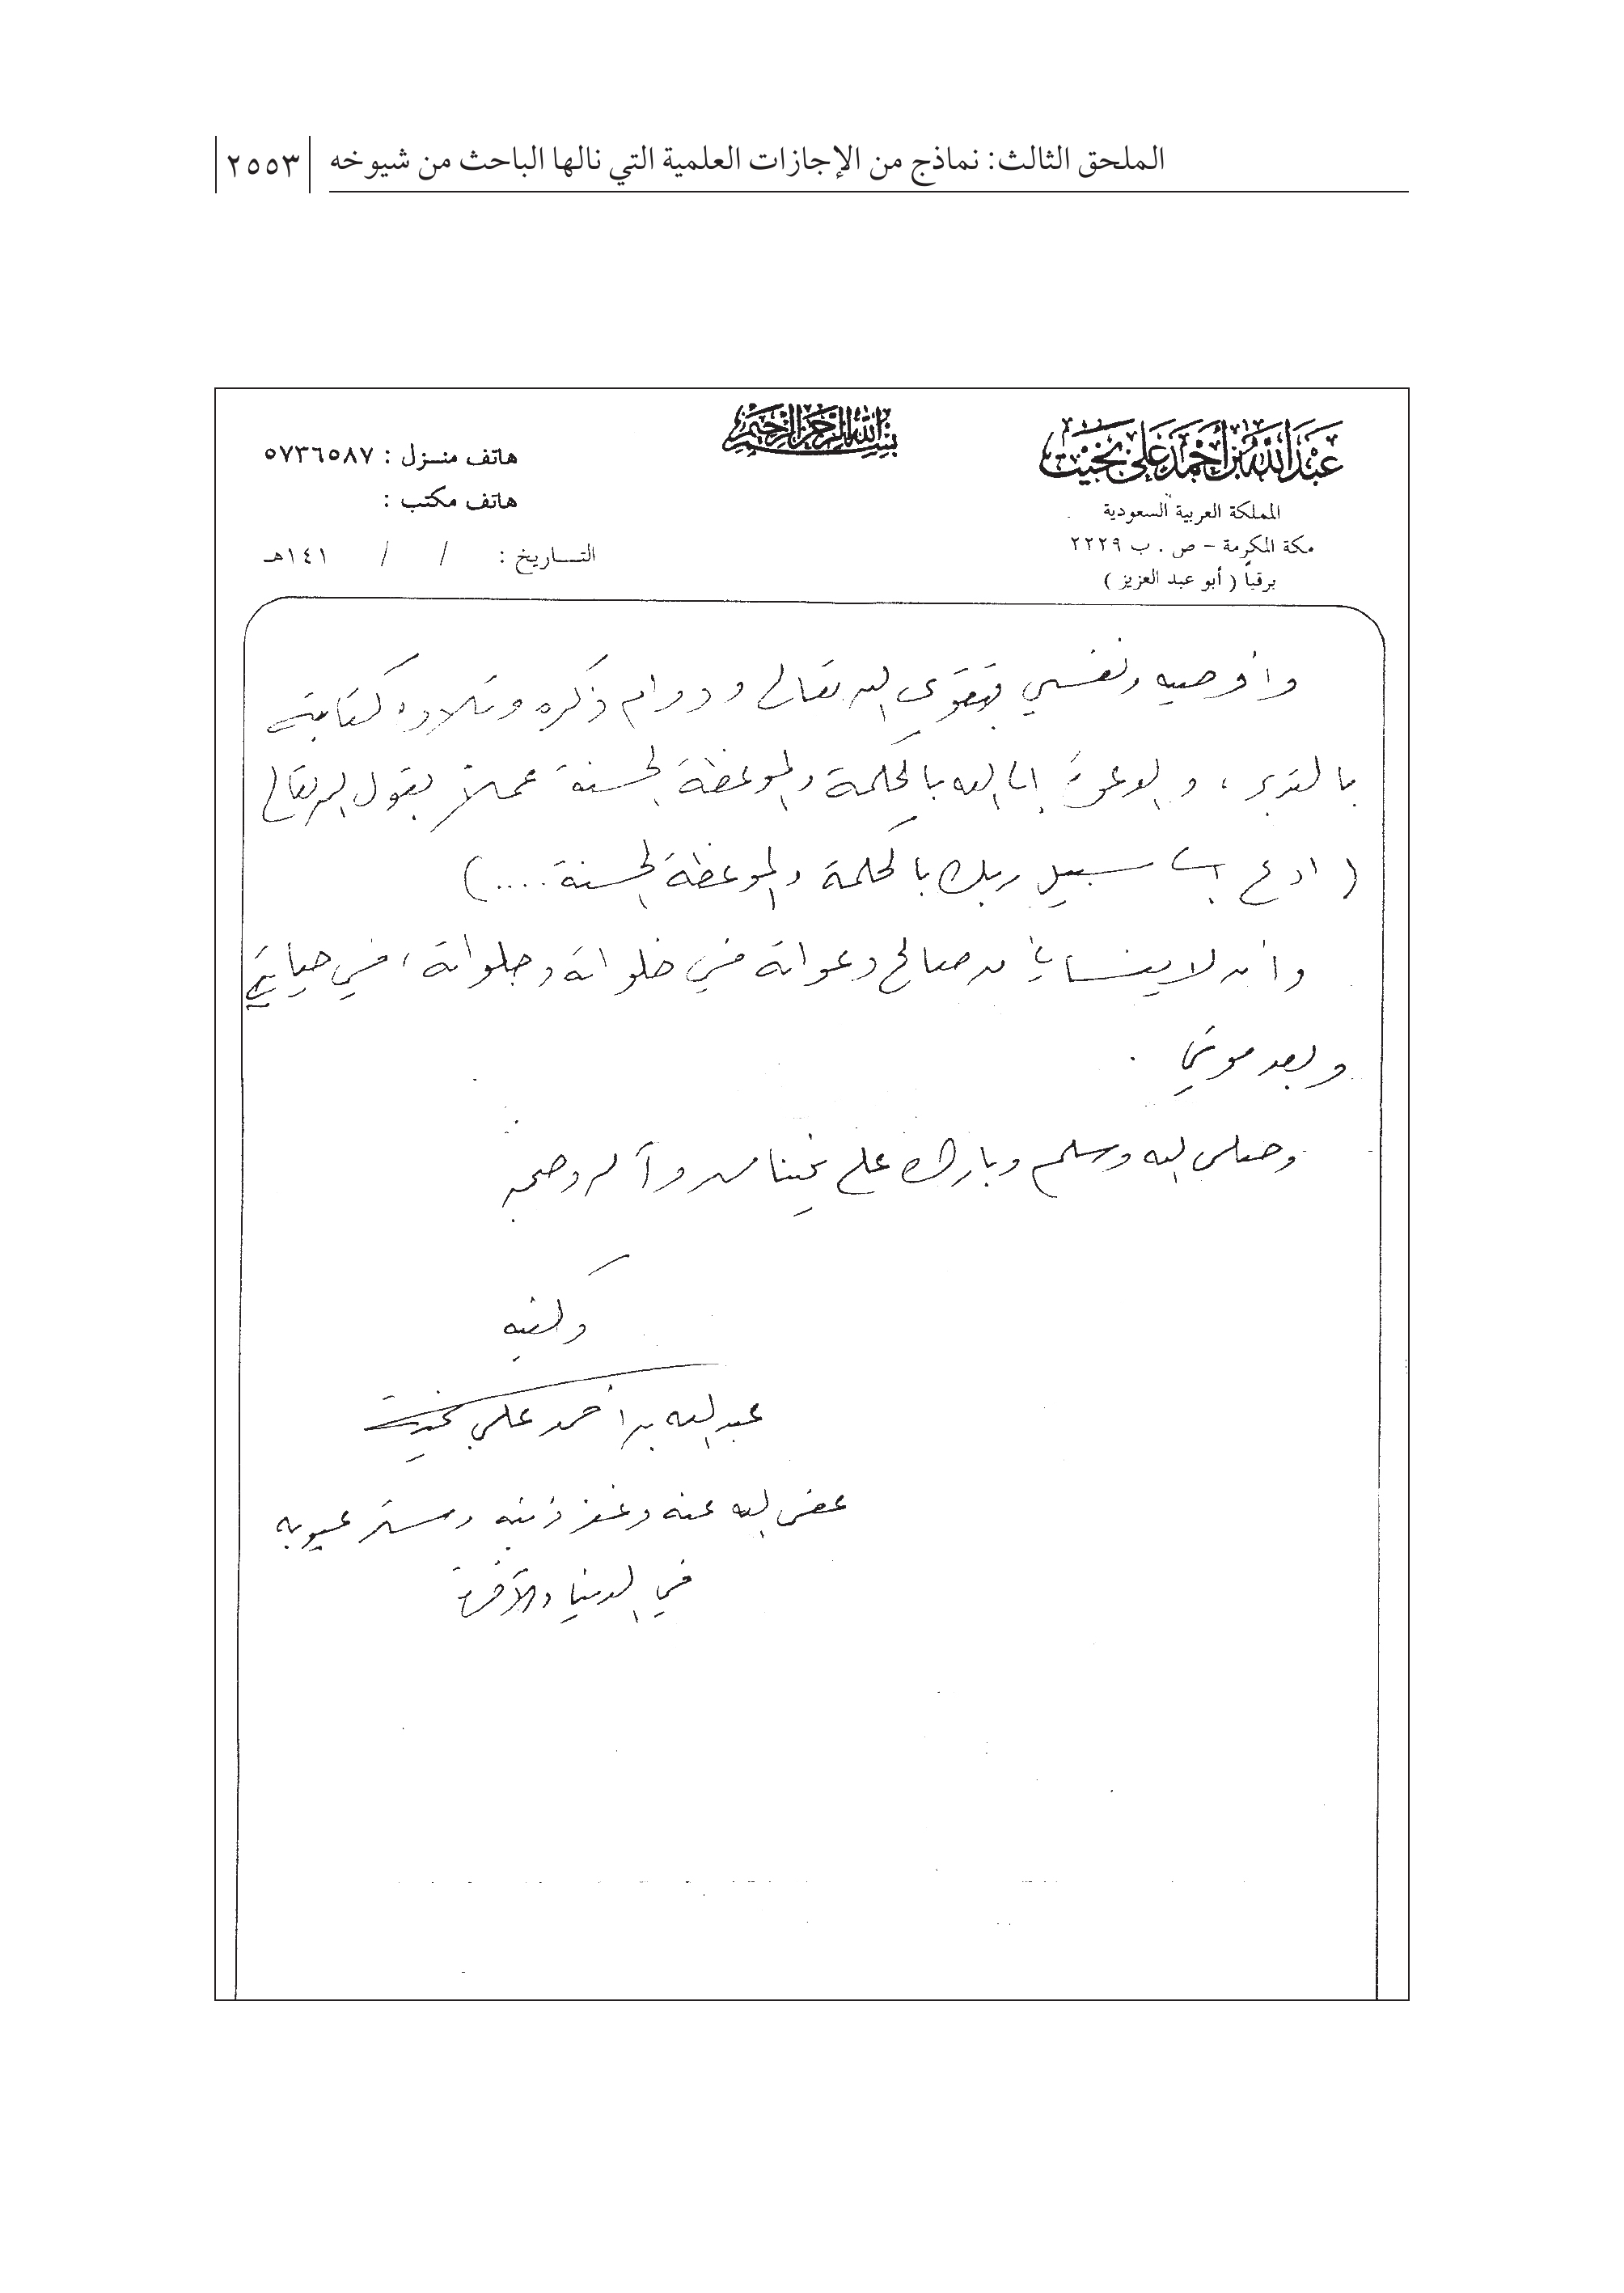 الملحق الثالث: نماذج من الإجازات العلمية التي نالها الباحث من شيوخه ٢٥٥٣
بسم الله الرحمن الرحيم
عبد الله بن أحمد علي بخيت
المملكة العربية السعودية
مكة المكرمة - ص . ب ٢٢٢٩
برقياً ( أبو عبد العزيز )
هاتف منزل : ٥٧٣٦٥٨٧
هاتف مكتب :
التاريخ : / / ١٤١هـ
وأوصيه ونفسي بتقوى الله تعالى ودوام ذكره وتلاوة كتابه
بالتدبر ، والدعوة إلى الله بالحكمة والموعظة الحسنة عملاً بقول الله تعالى
( ادع إلى سبيل ربك بالحكمة والموعظة الحسنة .... )
وأن لا ينساني من صالح دعواته في خلواته وجلواته ، في حياتي
وبعد موتي .
وصلى الله وسلم وبارك على نبينا محمد وآله وصحبه
وكتبه
عبد الله بن أحمد علي بخيت
عفى الله عنه وغفر ذنبه وستر عيوبه
في الدنيا والآخرة